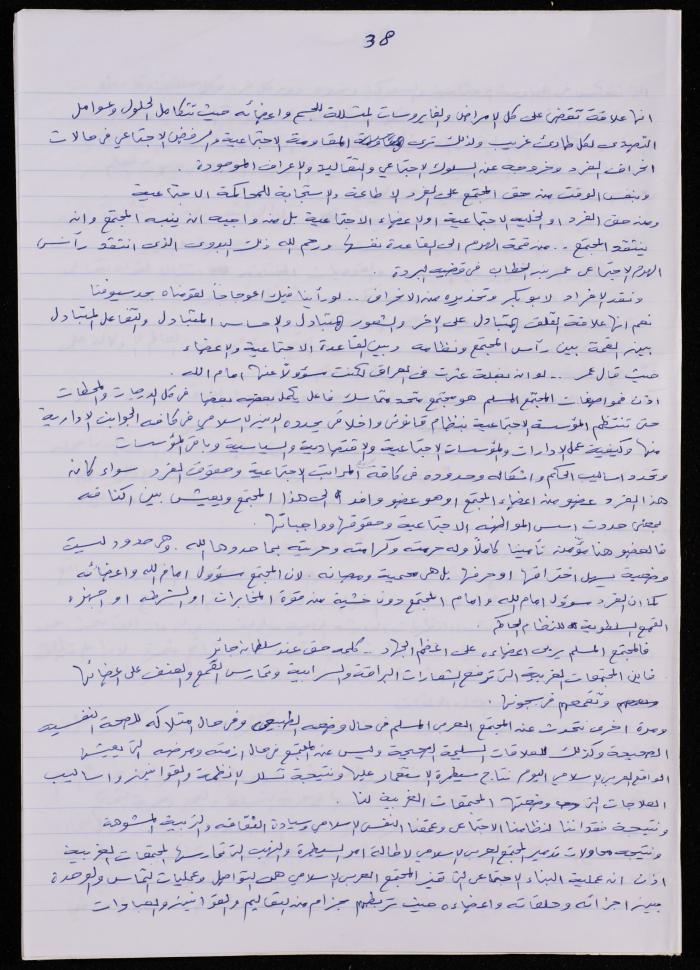 38
انها علاقة تقضي على كل الامراض والفايروسات المتسللة للجسم واعضائه حيث تتكامل الحلول وعوامل
التصدي لكل طارئ غريب ولذلك نرى المقاومة الاجتماعية والرفض الاجتماعي في حالات
انحراف الفرد وخروجه عن السلوك الاجتماعي والتقاليد والاعراف الموجودة .
وبنفس الوقت من حق المجتمع على الفرد الاطاعة والاستجابة للمحاكمة الاجتماعية
ومن حق الفرد او الخليه الاجتماعية او الاعضاء الاجتماعية بل من واجبه ان ينبه المجتمع وان
ينتقد المجتمع .. من قمة الهرم الى القاعدة نفسها ورحم الله ذلك البدوي الذي انتقد رأس
الهرم الاجتماعي عمر بن الخطاب في قضيه البردة .
ونقد الافراد لابو بكر وتحذيره من الانحراف .. لو رأينا فيك اعوجاجاً لقومناه بحد سيوفنا
نعم انها علاقة القلق المتبادل على الاخر والشعور المتبادل والاحساس المتبادل والتفاعل المتبادل
بين القمة بين رأس المجتمع ونظامه وبين القاعدة الاجتماعية والاعضاء
حيث قال عمر ... لو ان بغلة عثرت في العراق لكنت مسؤولاً عنها امام الله .
اذن فمواصفات المجتمع المسلم هو مجتمع متحد متماسك فاعل يكمل بعضه بعضا في كل الدرجات والمحطات
حتى تنتظم المؤسسة الاجتماعية بنظام قانوني واخلاقي يحدده الدين الاسلامي في كافه الجوانب الادارية
منها وكيفية عمل الادارات والمؤسسات الاجتماعية والاقتصادية والسياسية وباقي المؤسسات
وتحدد اساليب الحكم واشكاله وحدوده في كافة المراتب الاجتماعية وحقوق الفرد سواء كان
هذا الفرد عضو من اعضاء المجتمع او هو عضو وافد الى هذا المجتمع ويعيش بين اكنافه
بمعنى حددت اسس المواطنه الاجتماعية وحقوقها وواجباتها .
فالعضو هنا مؤمن تأمينا كاملاً وله حرمته وكرامته وحريته بما حددها الله . وهي حدود ليست
وضعية يسهل اختراقها او حرفها بل هي محمية ومصانه . لان المجتمع مسؤول امام الله واعضائه
كما ان الفرد مسؤول امام الله وامام المجتمع دون خشية من قوة المخابرات او الشرطه او اجهزه
القمع السلطوية للنظام الحاكم
فالمجتمع المسلم يربي اعضاءه على اعظم الجهاد .. كلمه حق عند سلطان جائر
فاين المجتمعات الغربية التي ترفع الشعارات البراقة والسرابية وتمارس القمع والعنف على اعضائها
وتقمعهم في سجونها .
ومرة اخرى نتحدث عن المجتمع العربي المسلم في حال وضعه الطبيعي وفي حال امتلاكه للصحة النفسيه
الصحيحة وكذلك للعلاقات السليمة الصحيحة وليس عن المجتمع في حال ازمته ومرضه التي يعيشها
الواقع العربي الاسلامي اليوم نتاج سيطرة الاستعمار عليها ونتيجة تسلل الانظمة والقوانين واساليب
العلاجات التي وضعتها المجتمعات الغربية لنا .
ونتيجة فقداننا لنظامنا الاجتماعي وعمقنا النفسي الاسلامي وسيادة الثقافه والتربية المشوهة
ونتيجه محاولات تدمير المجتمع العربي الاسلامي لاطالة امد السيطرة والنهب التي تمارسها المجتمعات الغربية
اذن ان عملية البناء الاجتماعي التي تميز المجتمع العربي الاسلامي هي التواصل وعمليات التماس والوحدة
بين اجزائه وحلقاته واعضاءه حيث تربطهم حزام من التقاليم والقوانين والعبادات